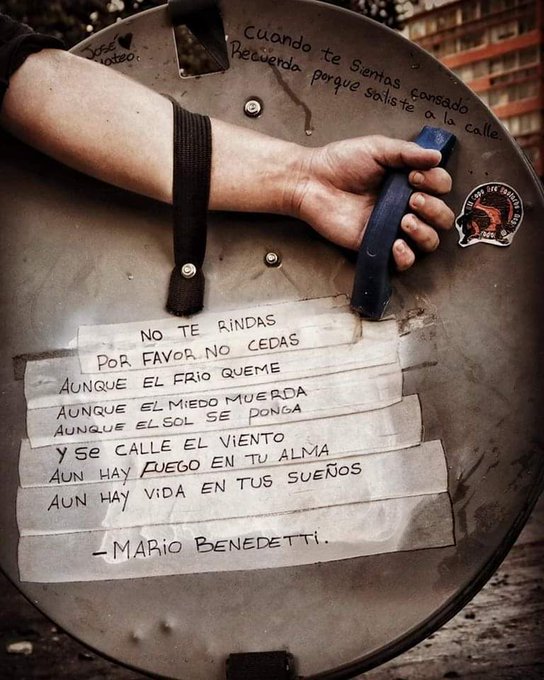 José ♥
Mateo.
Cuando te sientas cansado
Recuerda porque saliste a la calle.
NO TE RINDAS
POR FAVOR NO CEDAS
AUNQUE EL FRIO QUEME
AUNQUE EL MIEDO MUERDA
AUNQUE EL SOL SE PONGA
Y SE CALLE EL VIENTO
AUN HAY FUEGO EN TU ALMA
AUN HAY VIDA EN TUS SUEÑOS
- MARIO BENEDETTI.